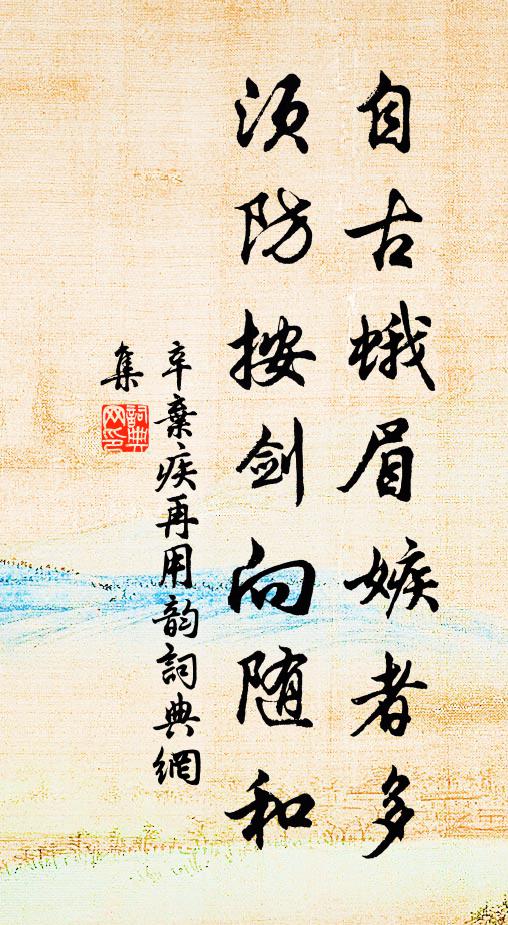 自古蛾眉嫉者多
须防按剑向随和
辛棄疾再用韵詞典網
集
詞典
网印